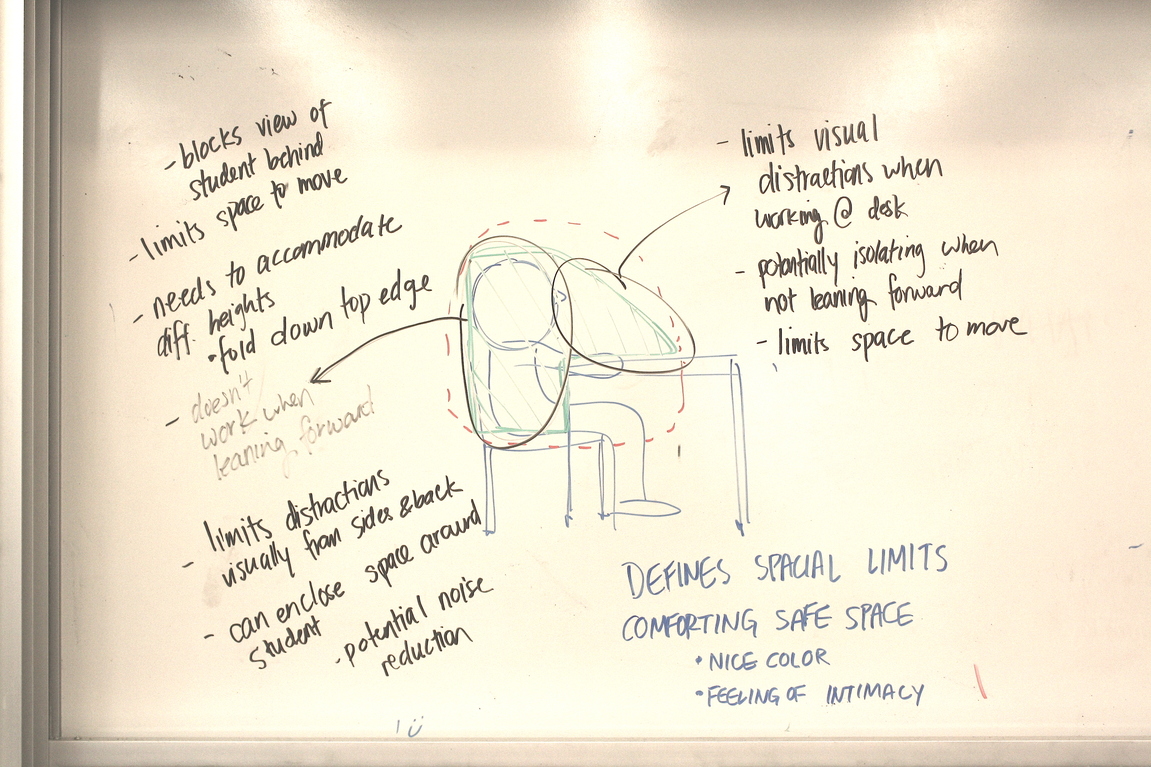 - blocks view of
student behind
- limits space to move
- needs to accommodate
diff. heights
• fold down top edge
- doesn't
work when
leaning forward
- limits distractions
visually from sides & back
- can enclose space around
student
- potential noise
reduction
- limits visual
distractions when
working @ desk
- potentially isolating when
not leaning forward
- limits space to move
DEFINES SPACIAL LIMITS
COMFORTING SAFE SPACE
• NICE COLOR
• FEELING OF INTIMACY